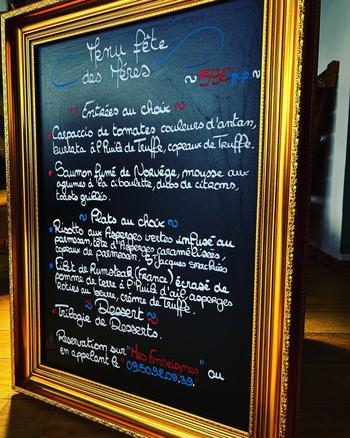 Menu fête
des Mères
~ 59€ p.p. ~
~ Entrées au choix ~
• Carpaccio de tomates couleurs d'antan,
burrata à l'Huile de Truffe, copeaux de Truffe.
• Saumon fumé de Norvège, mousse aux
agrumes à la ciboulette, dés de citrons,
toasts grillés.
~ Plats au choix ~
• Risotto aux Asperges vertes infusé au
parmesan, tête d'Asperges caramélisées,
copeaux de parmesan, St Jacques snackées
• Pavé de Rumsteak (France) écrasé de
pomme de terre à l'Huile d'ail, asperges
rôties au beurre, crème de Truffe.
~ Dessert ~
• Trilogie de
Desserts.
⚠ Réservation sur "Mes Enseignes" ou
en appelant le 09.50.92.09.39.